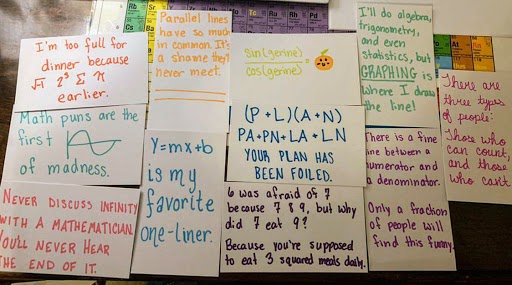 Rb Sr
Cs
I'm too full for
dinner because
√-1 2³ Σ π
earlier.
Parallel lines
have so much
in common. It's
a shame they'll
never meet.
sin(gerine)
cos(gerine)
=
I'll do algebra,
trigonometry,
and even
statistics, but
GRAPHING is
where I draw
the line!
There are
three types
of people:
Those who
can count,
and those
who can't
Math puns are the
first
of madness.
Y=mx+b
is my
favorite
one-liner.
(P + L)(A + N)
PA+PN+LA+LN
YOUR PLAN HAS
BEEN FOILED.
There is a fine
line between a
numerator and
a denominator.
Only a fraction
of people will
find this funny.
NEVER DISCUSS INFINITY
WITH A MATHEMATICIAN.
YOU'LL NEVER HEAR
THE END OF IT.
6 was afraid of 7
because 7 8 9, but why
did 7 eat 9?
Because you're supposed
to eat 3 squared meals daily.